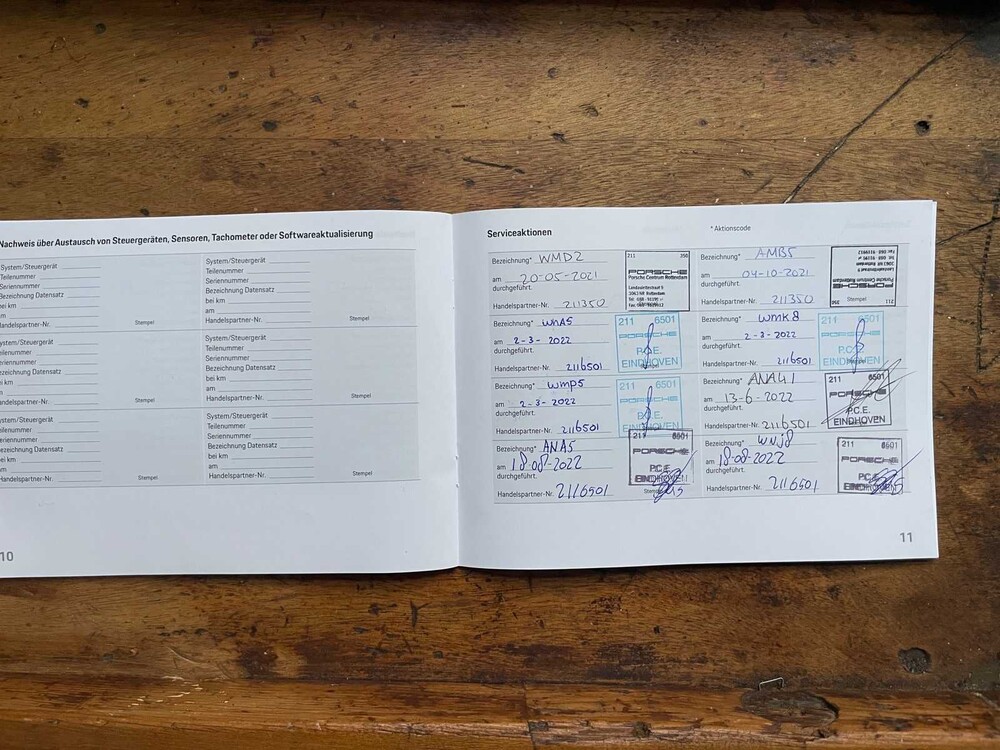 Nachweis über Austausch von Steuergeräten, Sensoren, Tachometer oder Softwareaktualisierung
System/Steuergerät
Teilenummer
Seriennummer
Bezeichnung Datensatz
bei km
am
Handelspartner-Nr.
Stempel
System/Steuergerät
Teilenummer
Seriennummer
Bezeichnung Datensatz
bei km
am
Handelspartner-Nr.
Stempel
System/Steuergerät
Teilenummer
Seriennummer
Bezeichnung Datensatz
bei km
am
Handelspartner-Nr.
Stempel
System/Steuergerät
Teilenummer
Seriennummer
Bezeichnung Datensatz
bei km
am
Handelspartner-Nr.
Stempel
System/Steuergerät
Teilenummer
Seriennummer
Bezeichnung Datensatz
bei km
am
Handelspartner-Nr.
Stempel
System/Steuergerät
Teilenummer
Seriennummer
Bezeichnung Datensatz
bei km
am
Handelspartner-Nr.
Stempel
10
Serviceaktionen
* Aktionscode
Bezeichnung* WMD2
am 20-05-2021
durchgeführt.
Handelspartner-Nr. 211350
211 350
PORSCHE
Porsche Centrum Rotterdam
Bezeichnung* AMB5
am 04-10-2021
durchgeführt.
Handelspartner-Nr. 211350
211 350
PORSCHE
Porsche Centrum Rotterdam
Stempel
Bezeichnung* WNA5
am 2-3-2022
durchgeführt.
Handelspartner-Nr. 2116501
211 6501
PORSCHE
EINDHOVEN
Bezeichnung* WMK8
am 2-3-2022
durchgeführt.
Handelspartner-Nr. 2116501
211 6501
PORSCHE
EINDHOVEN
Bezeichnung* WMP5
am 2-3-2022
durchgeführt.
Handelspartner-Nr. 2116501
211 6501
PORSCHE
P.C.E.
EINDHOVEN
Bezeichnung* ANA41
am 13-6-2022
durchgeführt.
Handelspartner-Nr. 2116501
211 6501
PORSCHE
P.C.E.
EINDHOVEN
Bezeichnung* ANA5
am 18-08-2022
durchgeführt.
Handelspartner-Nr. 2116501
211 6501
PORSCHE
P.C.E.
EINDHOVEN
Bezeichnung* WNJ8
am 18-08-2022
durchgeführt.
Handelspartner-Nr. 2116501
211 6501
PORSCHE
P.C.E.
EINDHOVEN
11